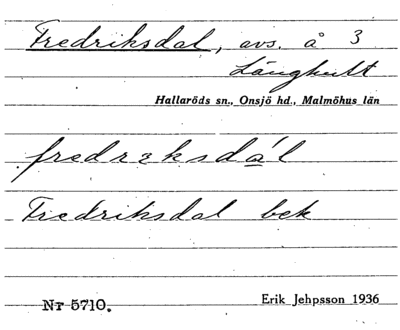 Fredriksdal, avs. å 3
Långhult
Hallaröds sn., Onsjö hd., Malmöhus län
fredrɛksdál
Fredriksdal bek
Nr 5710.
Erik Jehpsson 1936